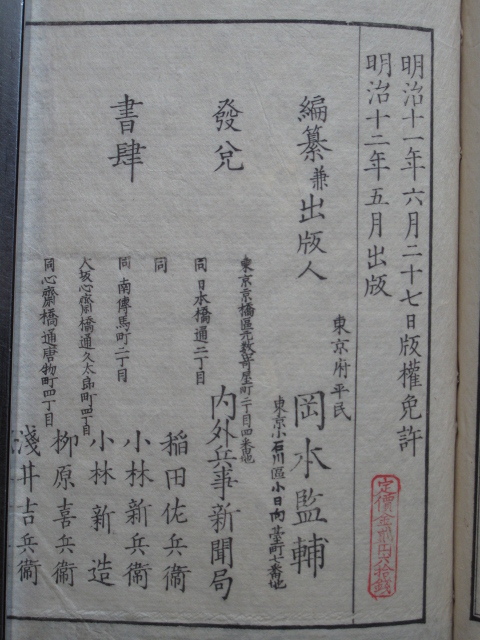 明治十一年六月二十七日版權免許
明治十二年五月出版
定價金貳円八拾錢
編纂兼出版人
東京府平民
岡本監輔
東京小石川區小日向臺町七番地
發兌
東京京橋區元數寄屋町二丁目四番地
内外兵事新聞局
書肆
同日本橋通二丁目
稲田佐兵衞
同
小林新兵衞
同南傳馬町二丁目
小林新造
大坂心齋橋通久太郎町四丁目
柳原喜兵衞
同心齋橋通唐物町四丁目
淺井吉兵衞